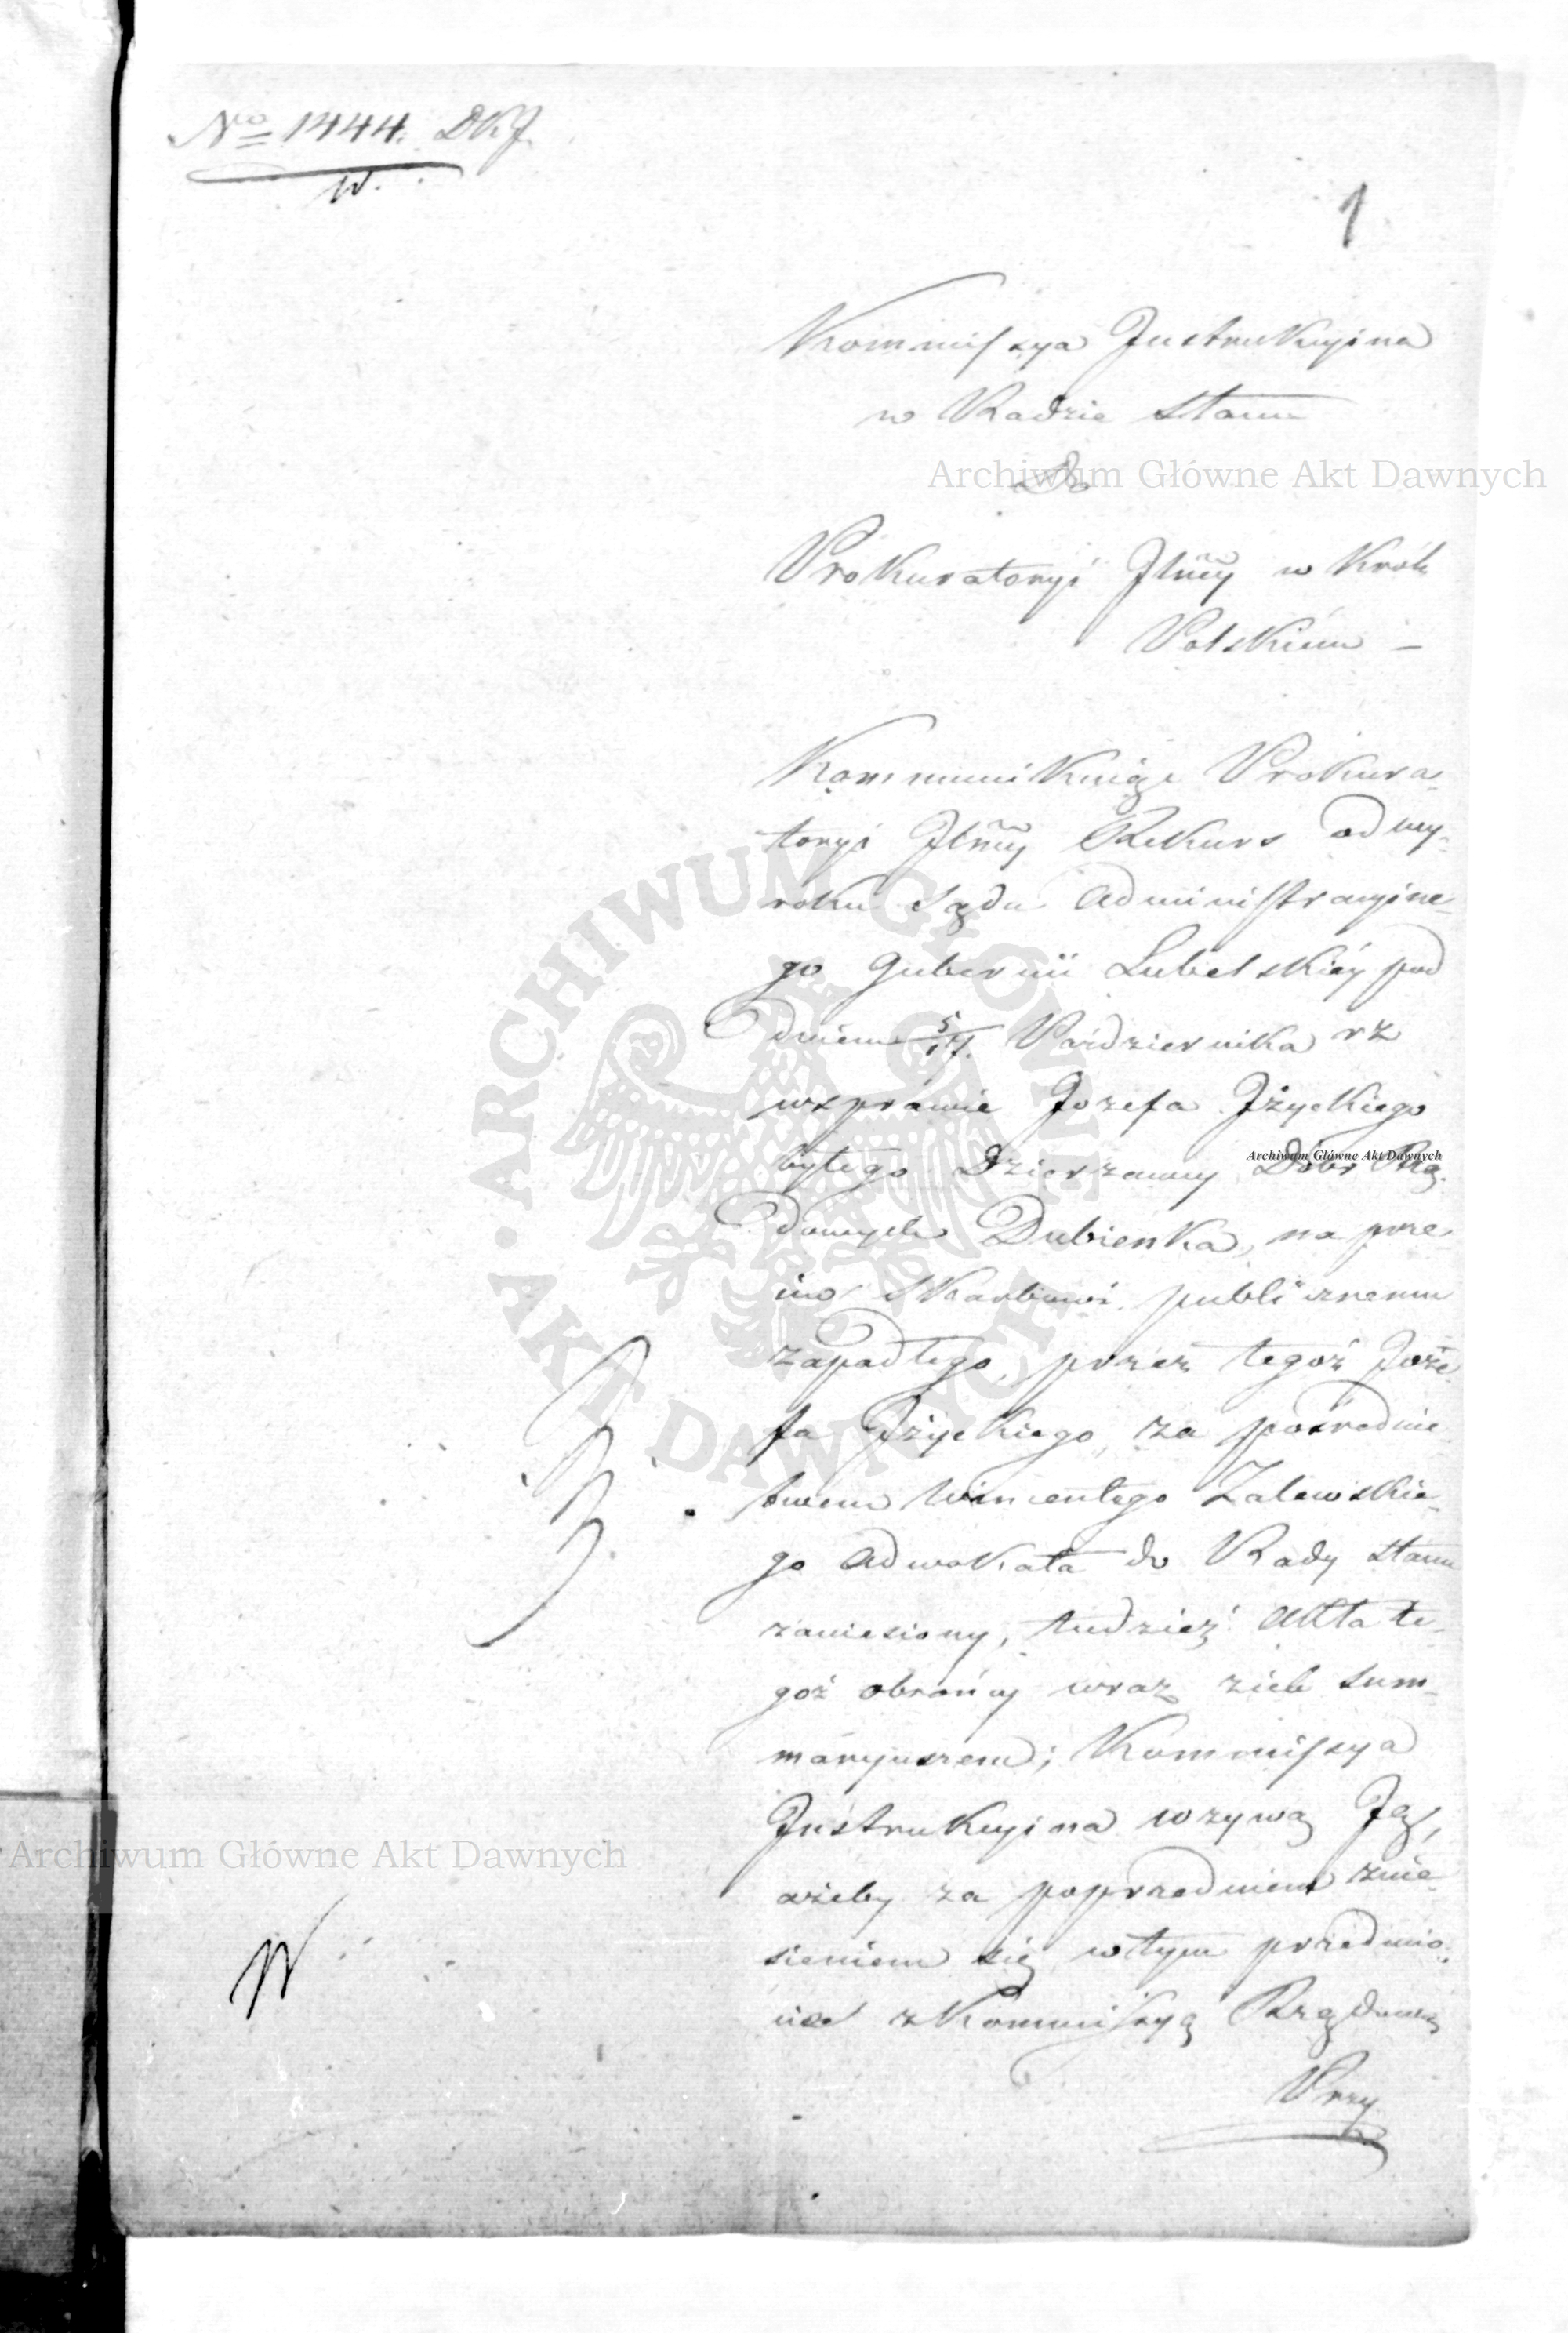 No 1444. DKJ.
W.
1
Kommissya Instrukcyina
w Radzie Stanu
Do
Prokuratoryi Jlney w Król.
Polskiém –
Kommunikuiąc Prokura-
toryi Jlney Rekurs od wy-
roku Sądu Administracyine-
go Gubernii Lubelskiéy pod
dniem 5/17. Październikа rz
wsprawie Jozefa Jżyckiego
byłego Dzierżawcy Dóbr Rzą-
dowych Dubienka, na prze-
ciw Skarbowi publicznemu
zapadłego, przez tegoż Joze-
fa Jżyckiego, za pośrednic-
twem Wincentego Zalewskie-
go Adwokata do Rady Stanu
zaniesiony, tudzież Akta te-
goż obrońcy wraz zich Sum-
maryuszem; Kommissya
Instrukcyina wzywa Ją,
ażeby za poprzedniem znie-
sieniem się wtym przedmio-
cie z Kommissyą Rządową
Przy
W
Archiwum Główne Akt Dawnych
Archiwum Główne Akt Dawnych
Archiwum Główne Akt Dawnych
ARCHIWUM GŁÓWNE • AKT DAWNYCH •